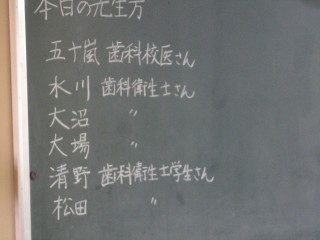 本日の先生方
五十嵐 歯科校医さん
水川 歯科衛生士さん
大沼 〃
大場 〃
清野 歯科衛生士学生さん
松田 〃